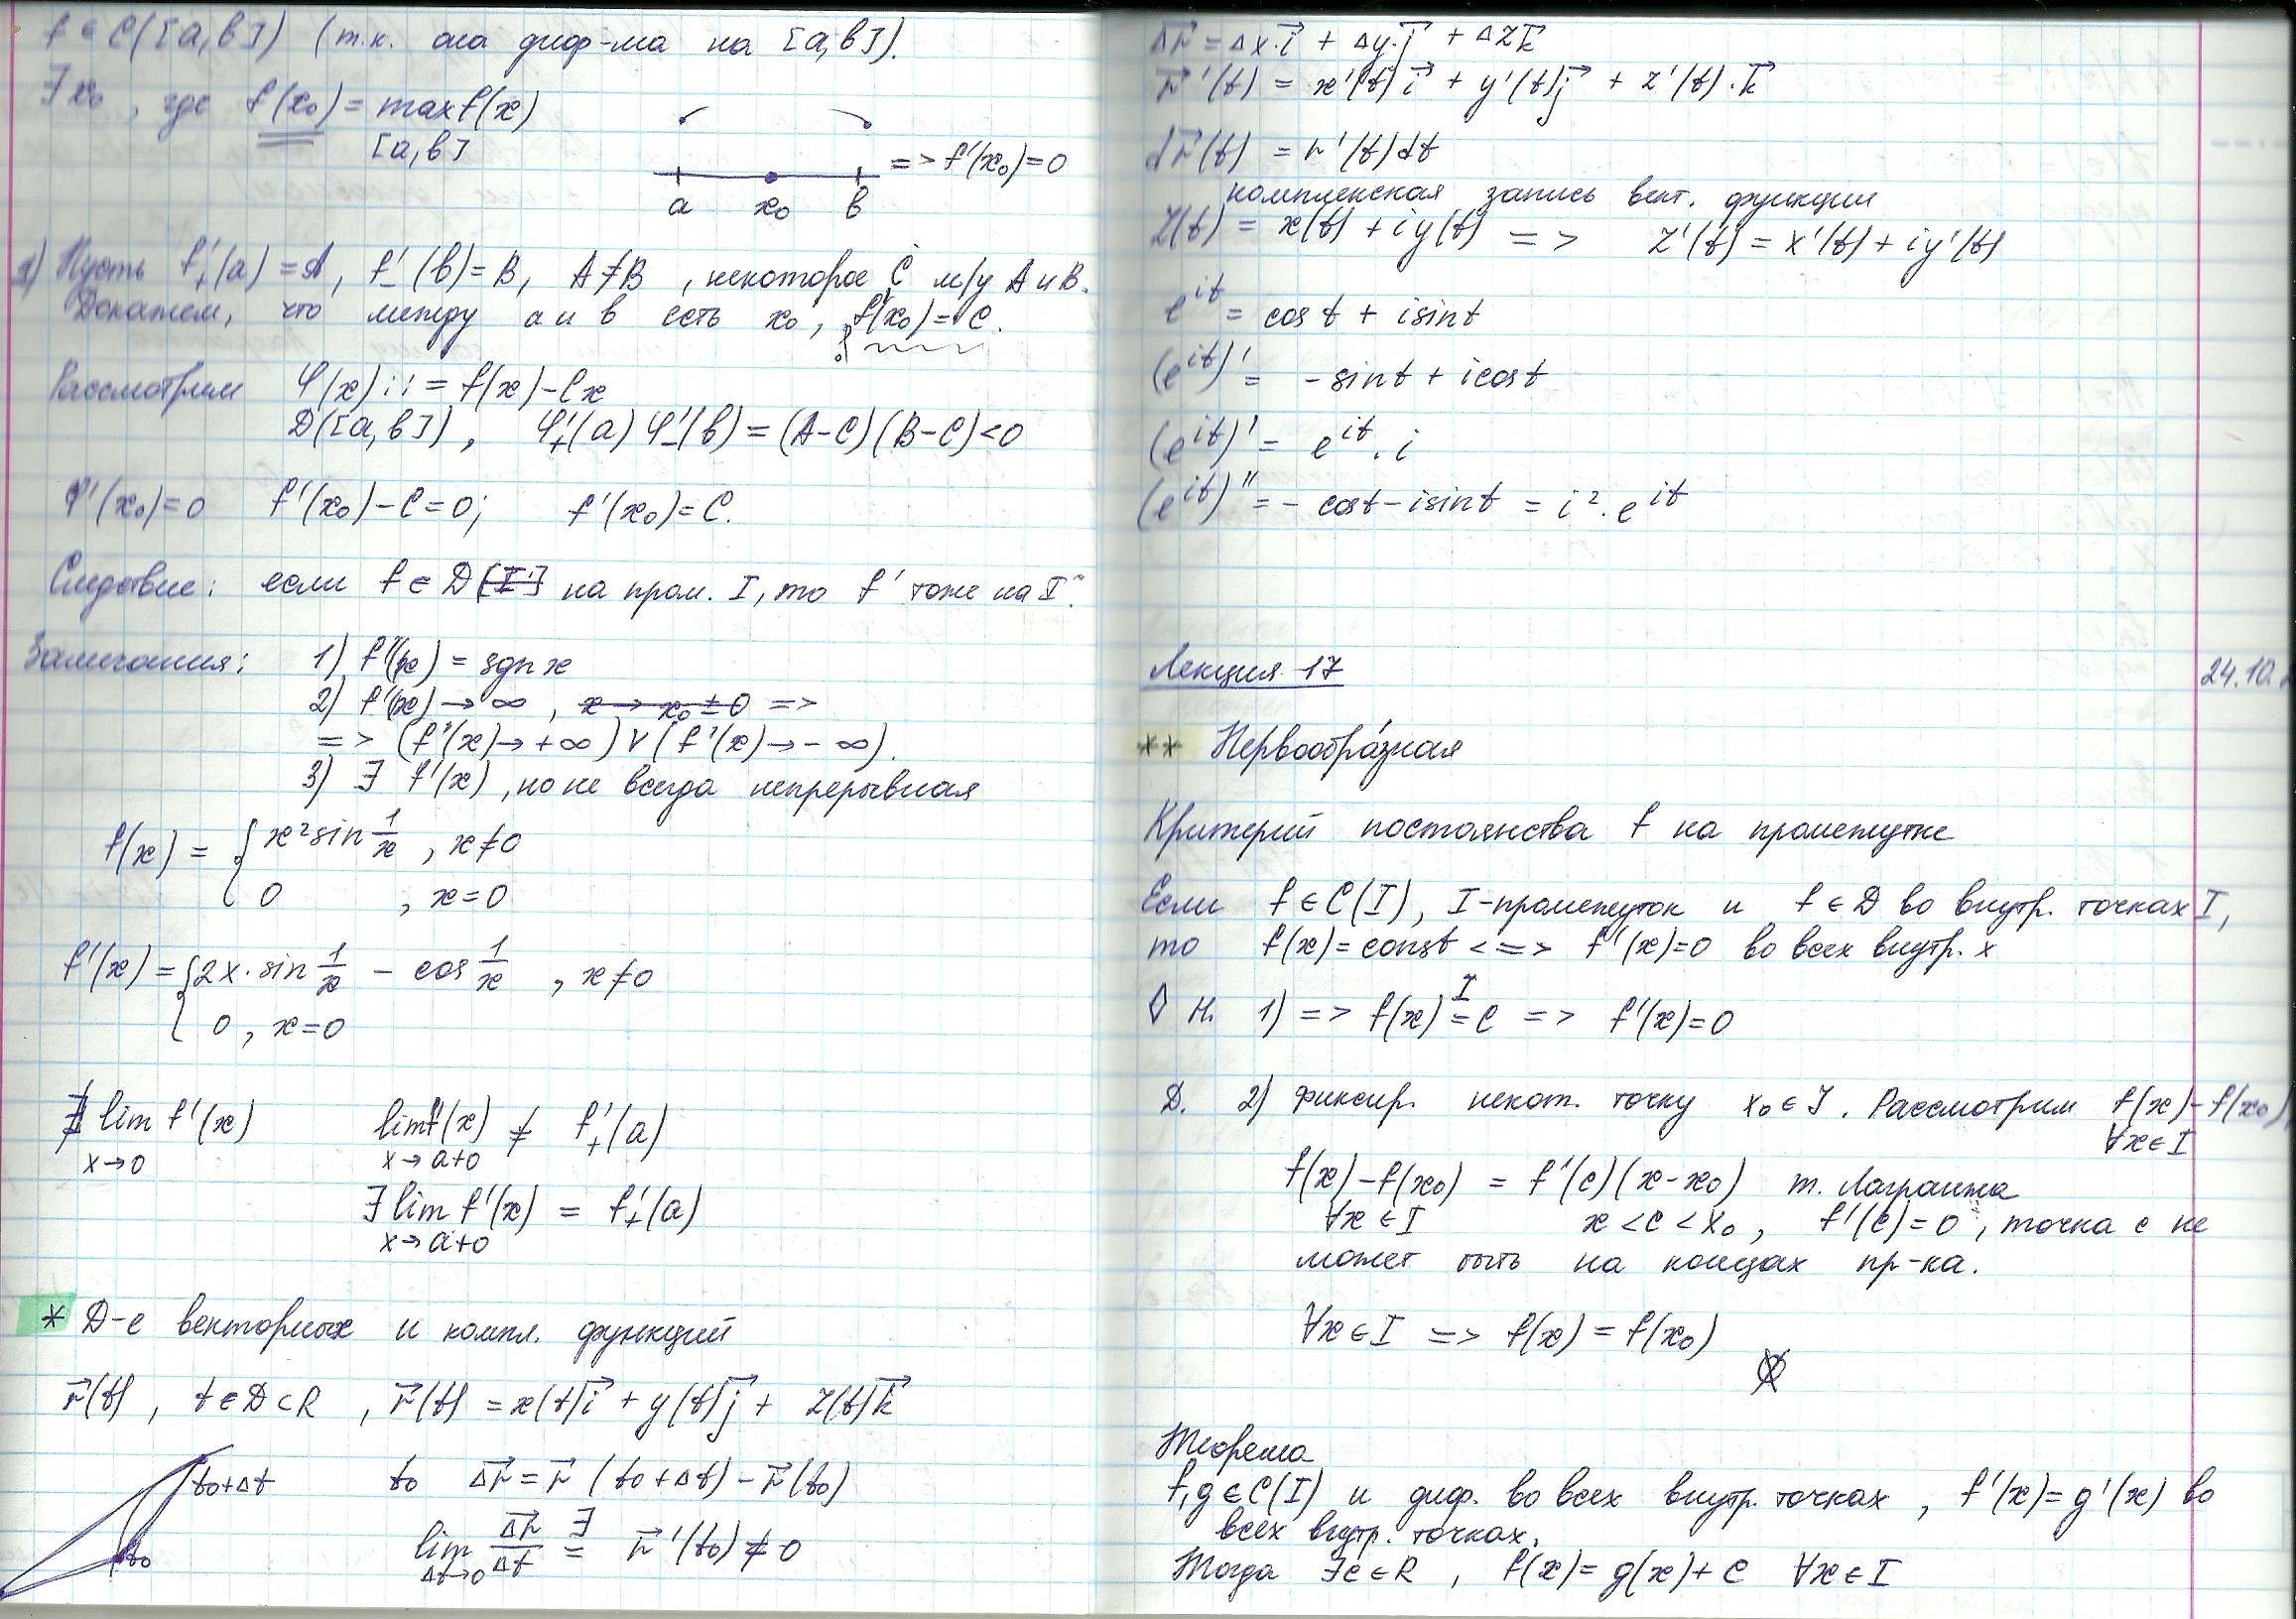 f ∈ C([a,b]) (т.к. она диф-ма на [a,b]).
∃x₀, где f(x₀) = max f(x)
[a,b]
=> f'(x₀)=0
a x₀ b
2) Пусть f'₊(a) = A, f'₋(b) = B, A≠B, некоторое C м/у A и B.
Докажем, что между a и b есть x₀, f'(x₀) = C.
Рассмотрим φ(x) ::= f(x) - Cx
D([a,b]), φ'₊(a) φ'₋(b) = (A-C)(B-C)<0
φ'(x₀)=0 f'(x₀)-C=0; f'(x₀)=C.
Следствие: если f ∈ D на пром. I, то f' тоже на I.
Замечания: 1) f'(x) = sgn x
2) f'(x) → ∞, x → x₀ ± 0 =>
=> (f'(x) → +∞) ∨ (f'(x) → -∞).
3) ∃ f'(x), но не всегда непрерывная
f(x) = { x² sin 1/x, x≠0
0, x=0
f'(x) = { 2x · sin 1/x - cos 1/x, x≠0
0, x=0
∄ lim f'(x) lim f'(x) ≠ f'₊(a)
x→0 x→a+0
∃ lim f'(x) = f'₊(a)
x→a+0
* Д-е векторных и компл. функций
r⃗(t), t∈D⊂R, r⃗(t) = x(t)i⃗ + y(t)j⃗ + z(t)k⃗
t₀+Δt t₀ Δr⃗ = r⃗(t₀+Δt) - r⃗(t₀)
t₀ lim Δr⃗/Δt ∃= r⃗'(t₀) ≠ 0
Δt→0
Δr⃗ = Δx·i⃗ + Δy·j⃗ + Δzk⃗
r⃗'(t) = x'(t)i⃗ + y'(t)j⃗ + z'(t)·k⃗
dr⃗(t) = r'(t)dt
комплексная запись вект. функции
z(t) = x(t) + iy(t) => z'(t) = x'(t) + iy'(t)
e^{it} = cos t + i sin t
(e^{it})' = -sin t + i cos t
(e^{it})' = e^{it} · i
(e^{it})'' = - cos t - i sin t = i² · e^{it}
Лекция 17 24.10.
** Первообра́зная
Критерий постоянства f на промежутке
Если f ∈ C(I), I-промежуток и f ∈ D во внутр. точках I,
то f(x) = const <=> f'(x)=0 во всех внутр. x
◊ Н. 1) => f(x) =ᴵ C => f'(x)=0
Д. 2) Фиксир. некот. точку x₀ ∈ I. Рассмотрим f(x)-f(x₀),
∀x∈I
f(x)-f(x₀) = f'(c)(x-x₀) т. Лагранжа
∀x∈I x<c<x₀, f'(c)=0, точка c не
может быть на концах пр-ка.
∀x∈I => f(x) = f(x₀)
Теорема
f,g ∈ C(I) и диф. во всех внутр. точках, f'(x) = g'(x) во
всех внутр. точках.
Тогда ∃c∈R, f(x) = g(x)+C ∀x∈I